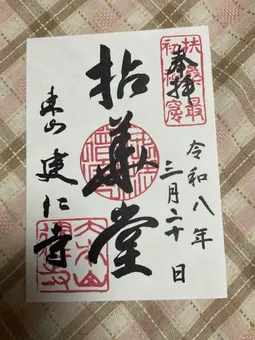 扶桑最
初禅窟
奉拝
令和八年
三月二十日
拈華堂
東山建仁寺